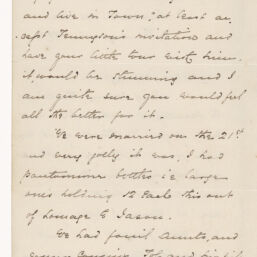 and live in Town, at least ac
cept Tennyson's invitation and
have your little tour with him.
It would be stunning and I
am quite sure you would feel
all the better for it.
We were married on the 21st
and very jolly it was. I had
pantomime bottles i.e. large
ones holding 12 each this out
of homage to Jason.
We had Aunts, and